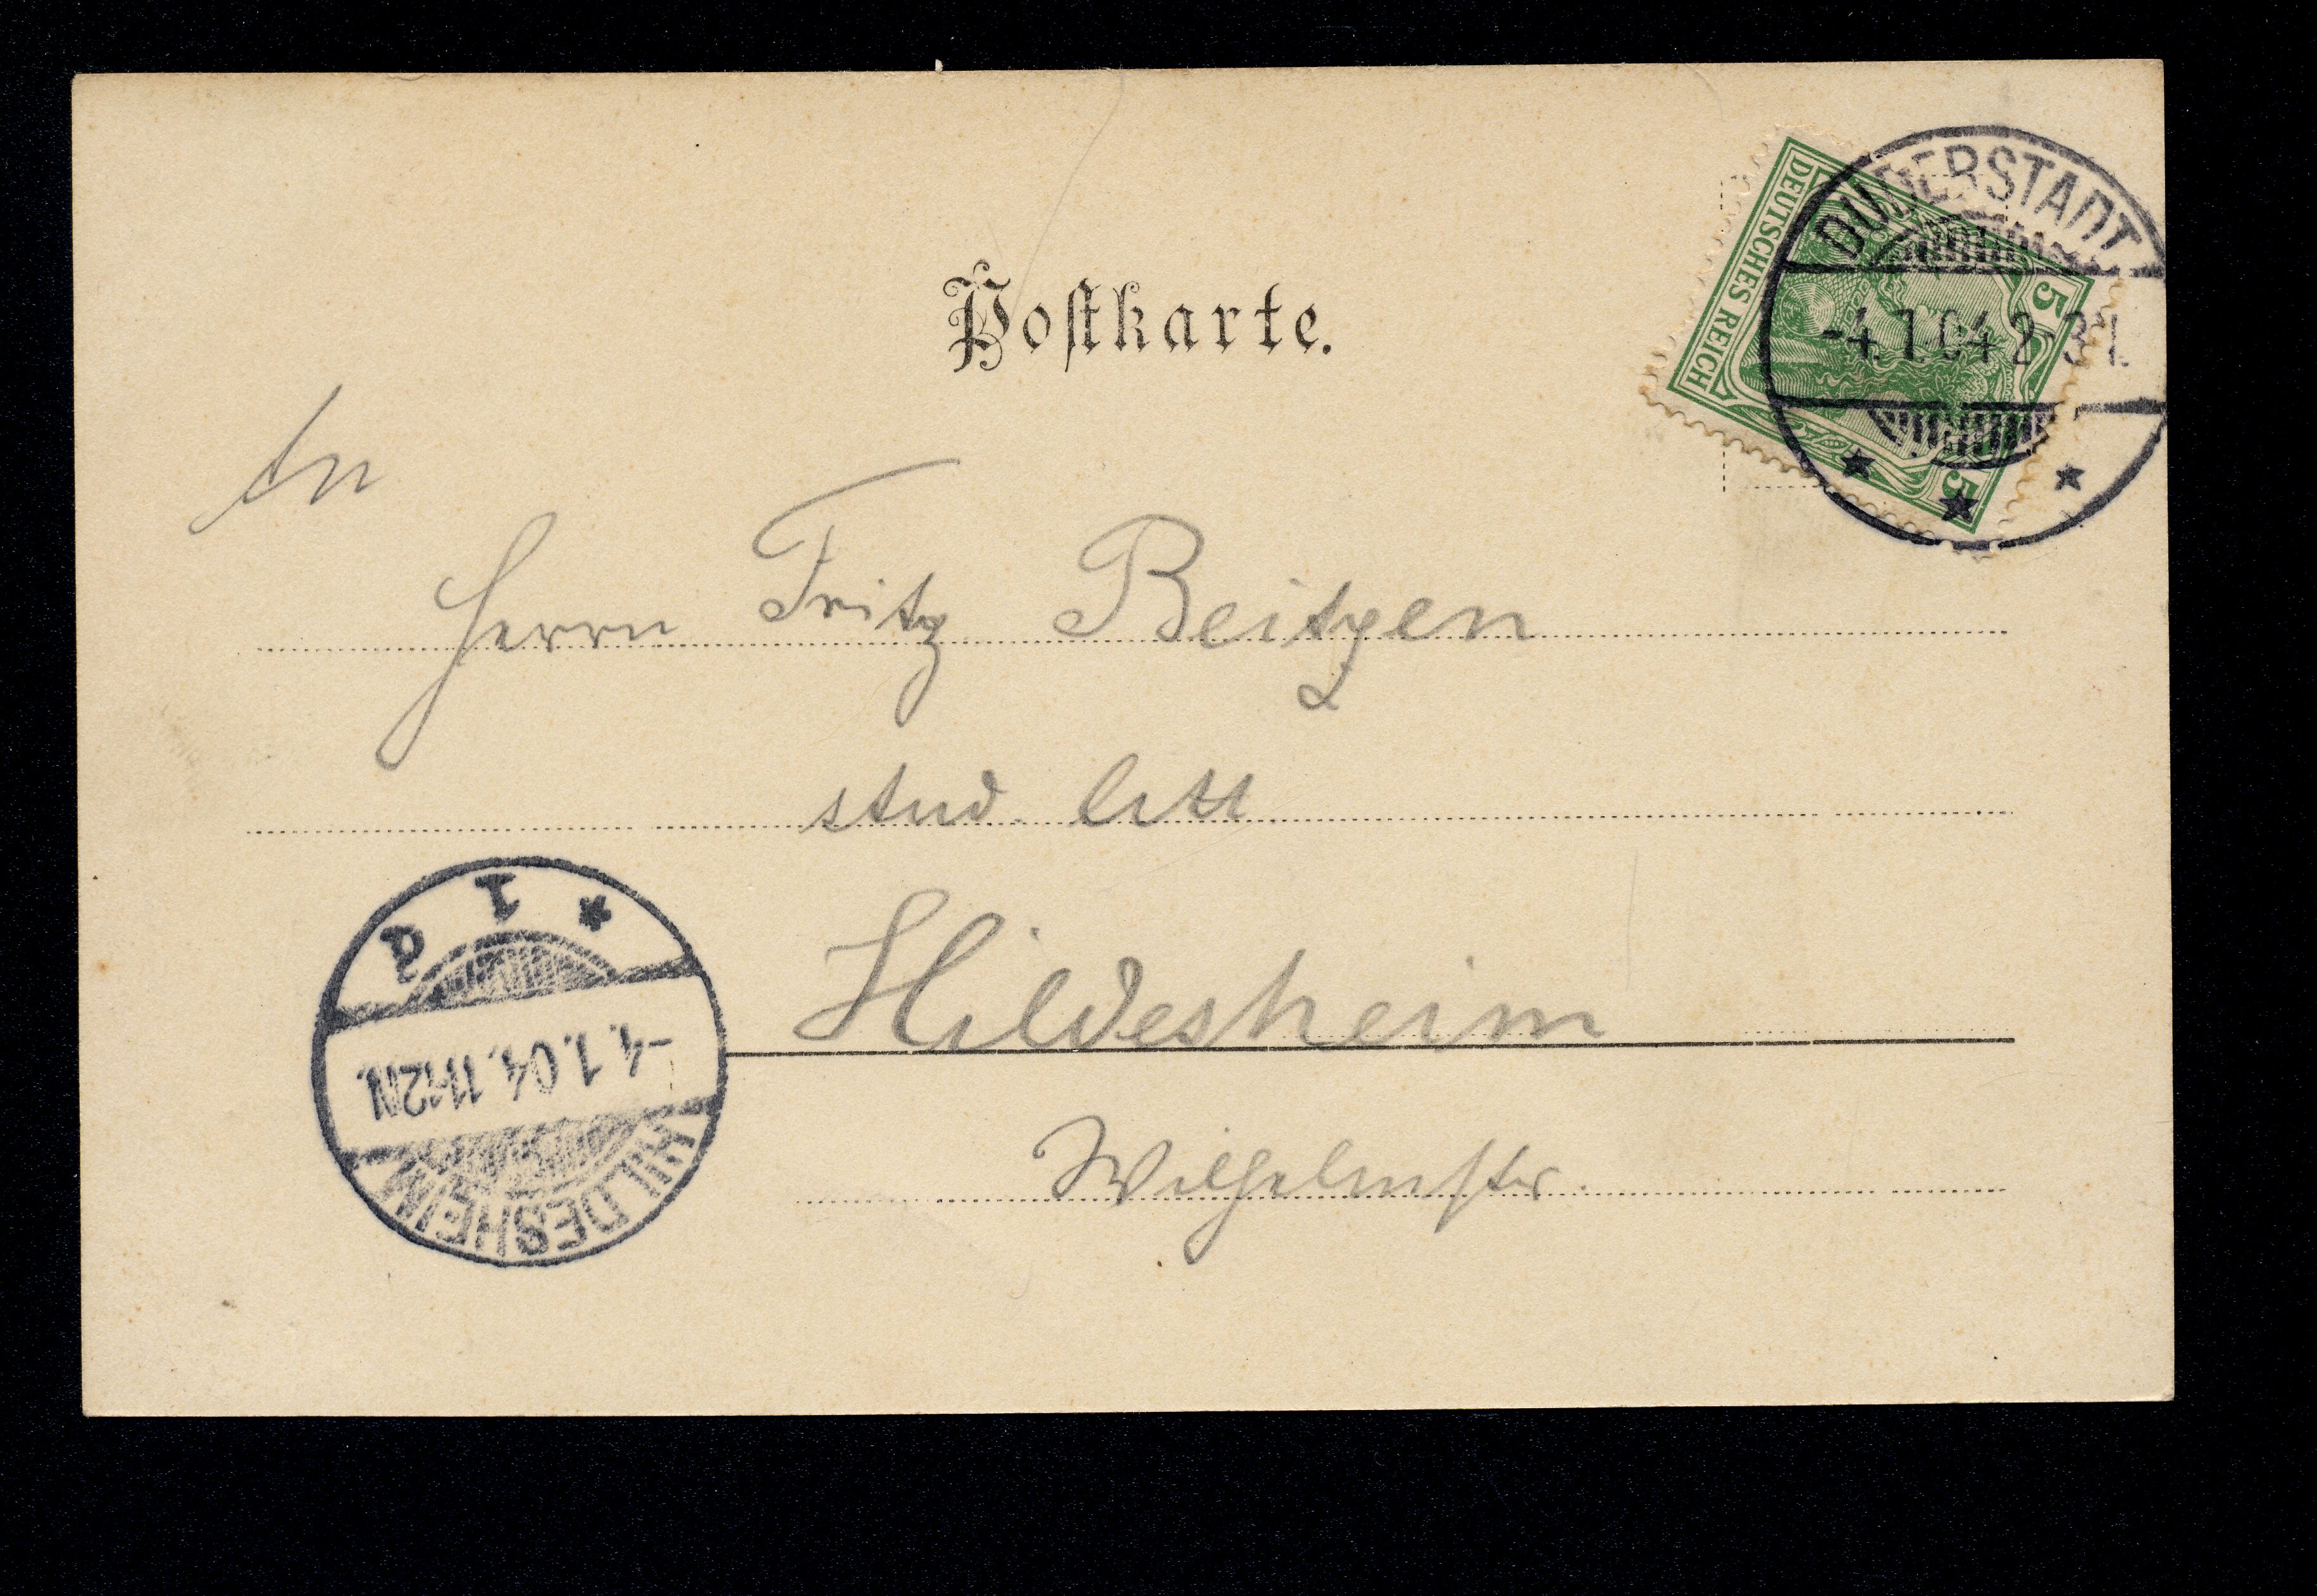 Postkarte.
DUDERSTADT
-4.1.04 2-3 N.
DEUTSCHES REICH
5
5
An
Herrn Fritz Beitzen
stud. litt.
Hildesheim
Wilhelmstr.
HILDESHEIM
-4.1.04.11-12N.
* 1 d